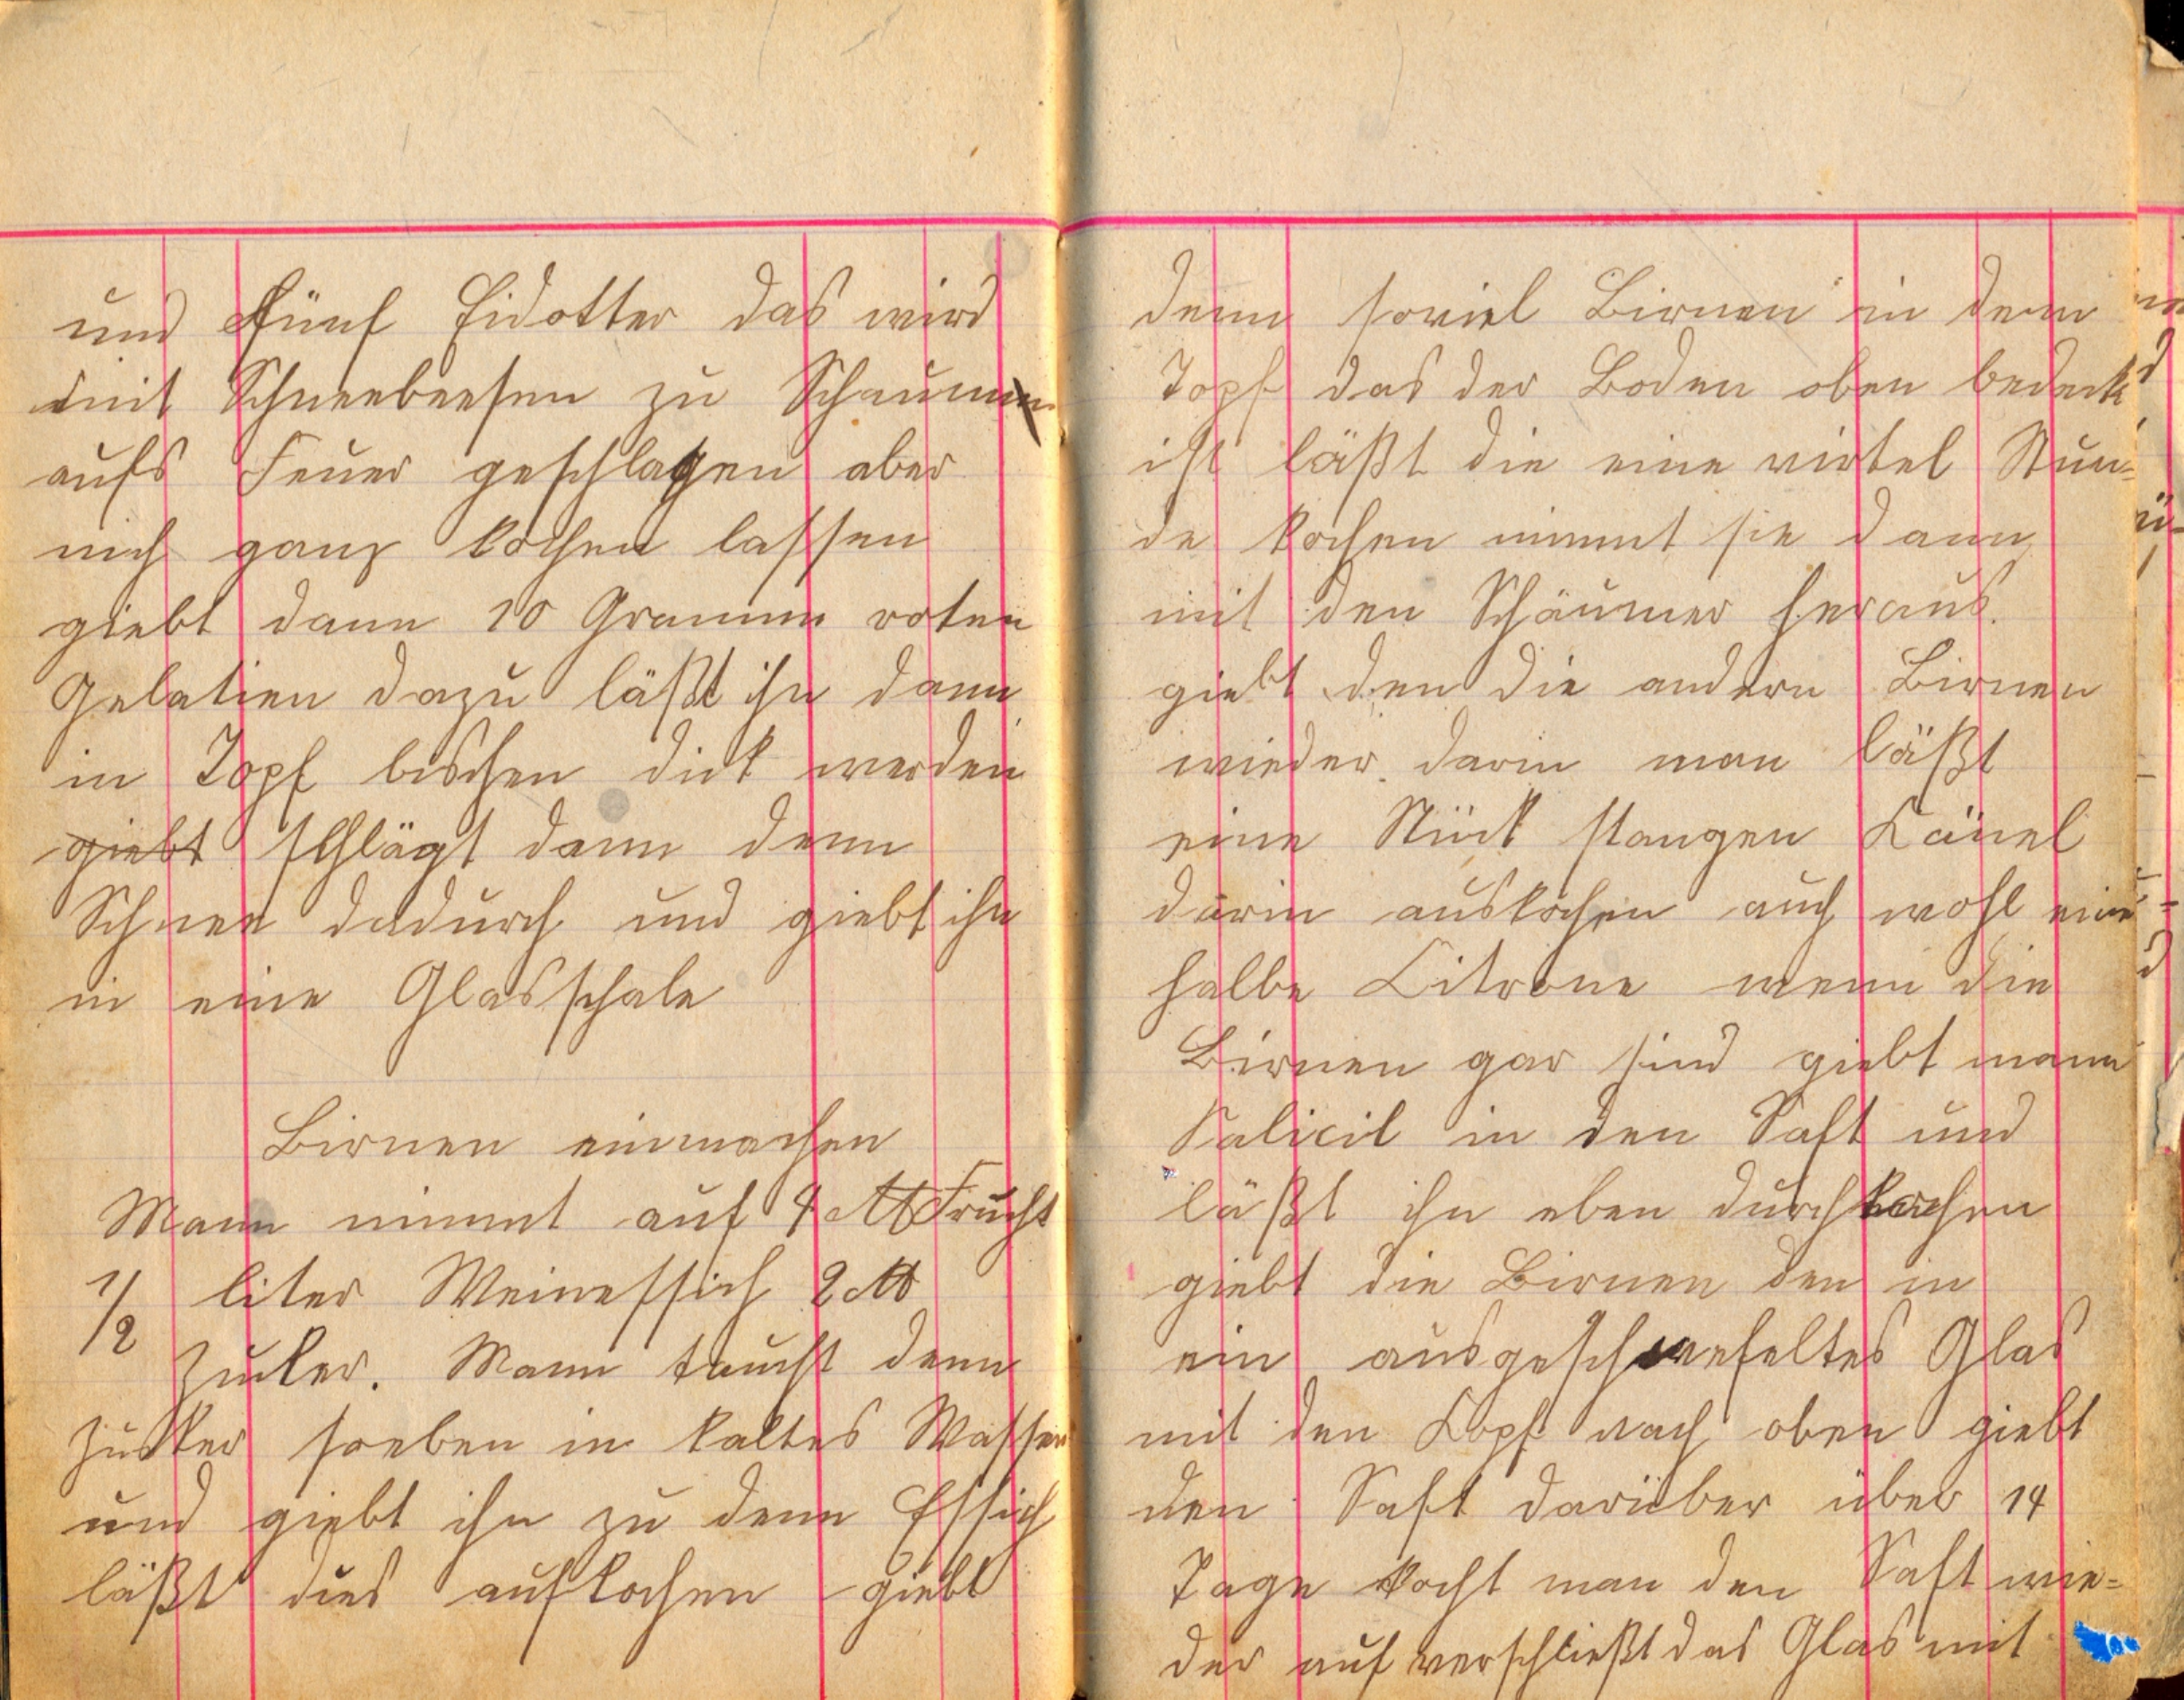 und fünf Eidotter das wird
mit Schneebeesen zu Schaum
aufs Feuer geschlagen aber
nich ganz kochen lassen
giebt dann 10 Gramm roten
Gelatien dazu läßt ihn dann
in Topf bischen dick werden
giebt schlägt dann denn
Schnee dadurch und giebt ihn
in eine Glasschale
Birnen einmachen
Mann nimmt auf 4 ℔ Frucht
1/2 liter Weinessich 2 ℔
Zucker. Mann taucht denn
Zucker soeben in kaltes Wasser
und giebt ihn zu denn Essich
läßt dies aufkochen giebt
denn soviel Birnen in denn
Topf das der Boden oben bedeckt
ist läßt die eine virtel Stun=
de kochen nimmt sie dann
mit den Schäumer heraus.
giebt den die andern Birnen
wieder darin man läßt
eine Stück stangen Känel
darin auskochen auch wohl eine
halbe Citrone wenn die
Birnen gar sind giebt mann
Salicil in den Saft und
läßt ihn eben durchkochen
giebt die Birnen den in
ein ausgeschwefeltes Glas
mit den Kopf nach oben giebt
den Saft darüber über 14
Tage kocht man den Saft wie=
der auf verschließt das Glas mit